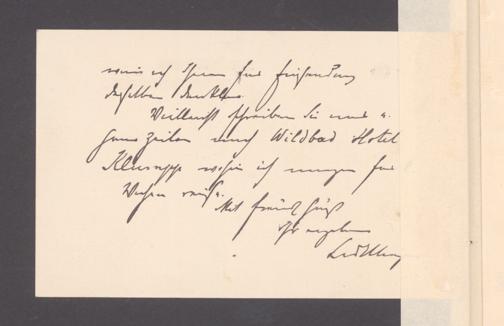 wenn ich Ihnen für Zusendung
derselben danke.
Vielleicht schreiben Sie mir
Zeilen nach Wildbad Hotel
Klumpp wohin ich morgen für
Wochen reise.
Mit freundl Gruß
Ihr ergebener